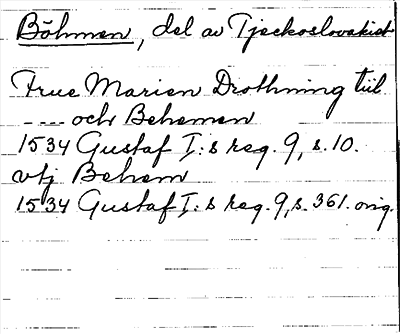 Böhmen, del av Tjeckoslovakiet
Frue Marien Drothning till
---- och Behemen
1534 Gustaf I:s reg. 9, s. 10.
utj Behem
1534 Gustaf I:s reg. 9, s. 361. orig.